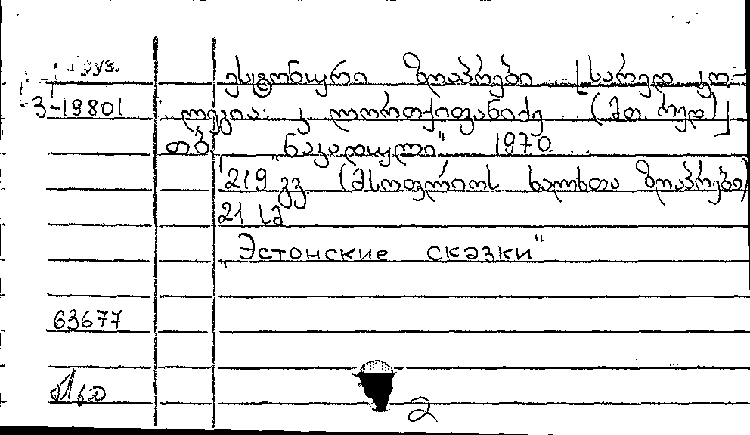 груз.
ესტონური ზღაპრები [სარედ. კო-
3-19801 ლეგია: კ. ლორთქიფანიძე (მთ. რედ.)]
თბ. "ნაკადული" 1970
219 გვ. (მსოფლიოს ხალხთა ზღაპრები)
21 სმ
"Эстонские сказки"
63677
2